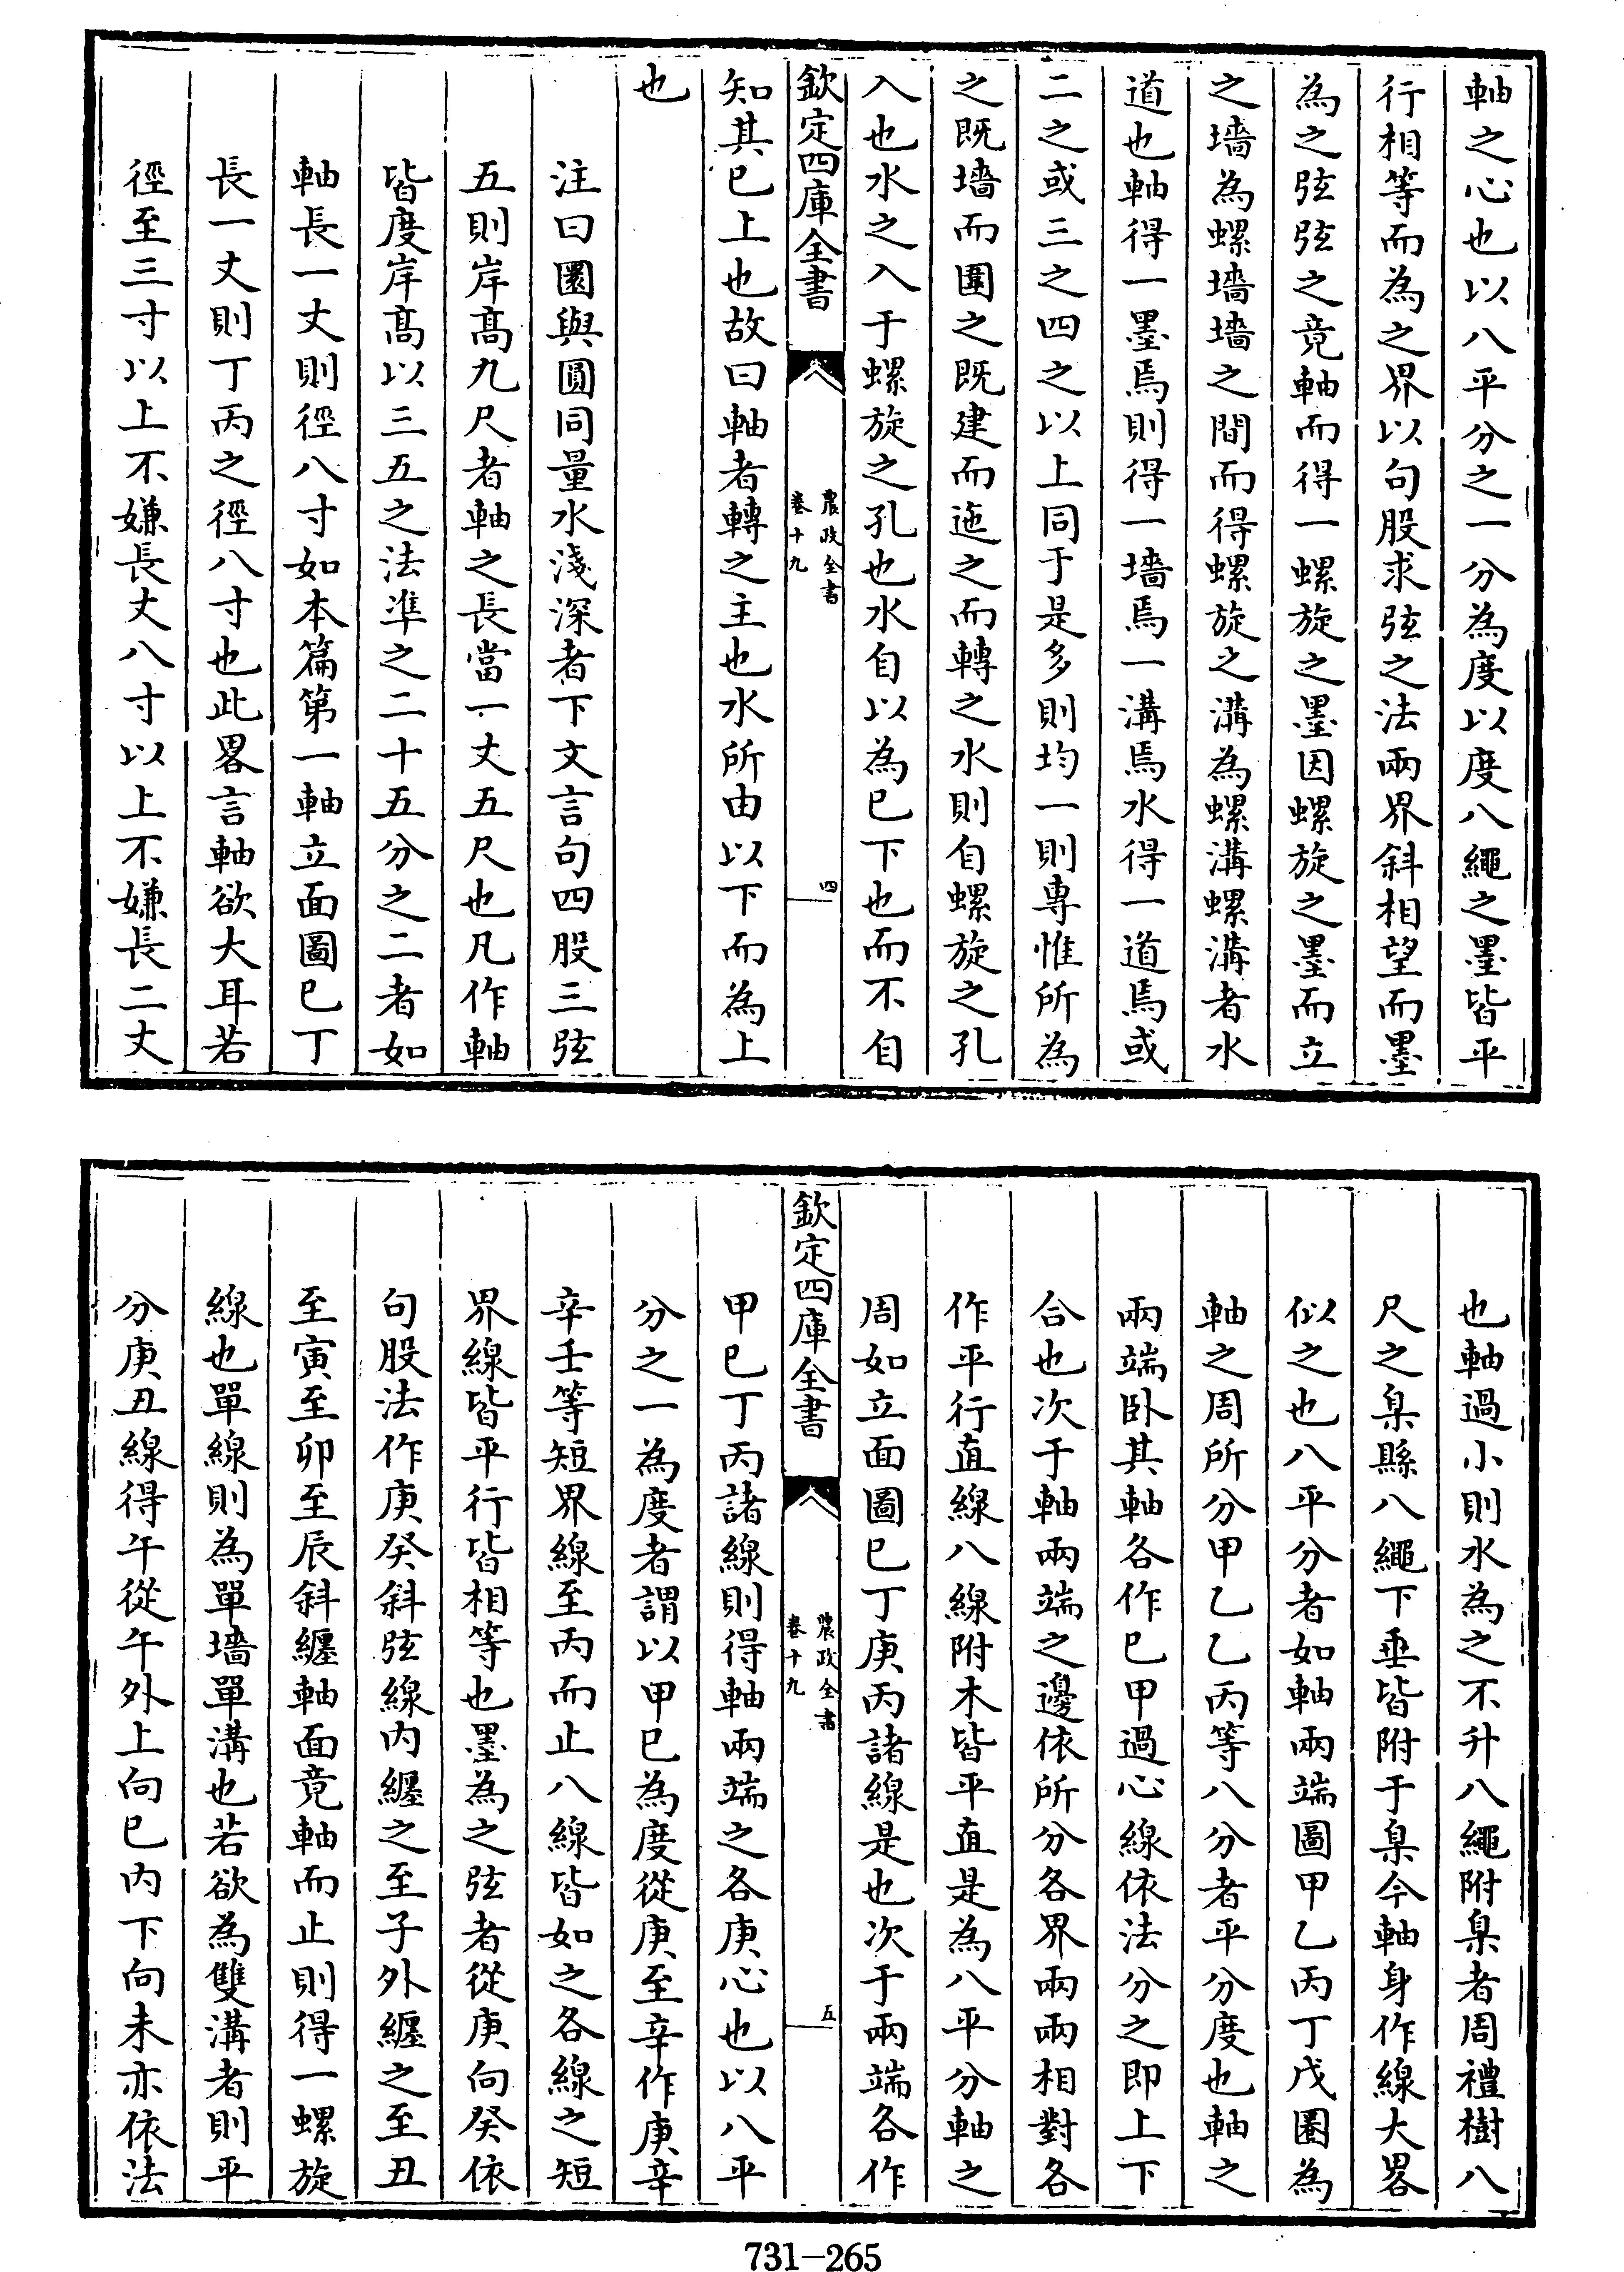 軸之心也以八平分之一分為度以度八繩之墨皆平
行相等而為之界以句股求弦之法兩界斜相望而墨
為之弦弦之竟軸而得一螺旋之墨因螺旋之墨而立
之墻為螺墻墻之間而得螺旋之溝為螺溝螺溝者水
道也軸得一墨焉則得一墻焉一溝焉水得一道焉或
二之或三之四之以上同于是多則均一則專惟所為
之既墻而圍之既建而迤之而轉之水則自螺旋之孔
入也水之入于螺旋之孔也水自以為已下也而不自
欽定四庫全書
農政全書
卷十九
四
知其已上也故曰軸者轉之主也水所由以下而為上
也
注曰圜與圓同量水淺深者下文言句四股三弦
五則岸髙九尺者軸之長當一丈五尺也凡作軸
皆度岸髙以三五之法準之二十五分之二者如
軸長一丈則徑八寸如本篇第一軸立面圖已丁
長一丈則丁丙之徑八寸也此畧言軸欲大耳若
徑至三寸以上不嫌長丈八寸以上不嫌長二丈
也軸過小則水為之不升八繩附臬者周禮樹八
尺之臬縣八繩下垂皆附于臬今軸身作線大畧
似之也八平分者如軸兩端圖甲乙丙丁戊圜為
軸之周所分甲乙乙丙等八分者平分度也軸之
兩端卧其軸各作已甲過心線依法分之即上下
合也次于軸兩端之邊依所分各界兩兩相對各
作平行直線八線附木皆平直是為八平分軸之
周如立面圖已丁庚丙諸線是也次于兩端各作
欽定四庫全書
農政全書
卷十九
五
甲已丁丙諸線則得軸兩端之各庚心也以八平
分之一為度者謂以甲已為度從庚至辛作庚辛
辛壬等短界線至丙而止八線皆如之各線之短
界線皆平行皆相等也墨為之弦者從庚向癸依
句股法作庚癸斜弦線内纒之至子外纒之至丑
至寅至卯至辰斜纒軸面竟軸而止則得一螺旋
線也單線則為單墻單溝也若欲為雙溝者則平
分庚丑線得午從午外上向已内下向未亦依法
731-265